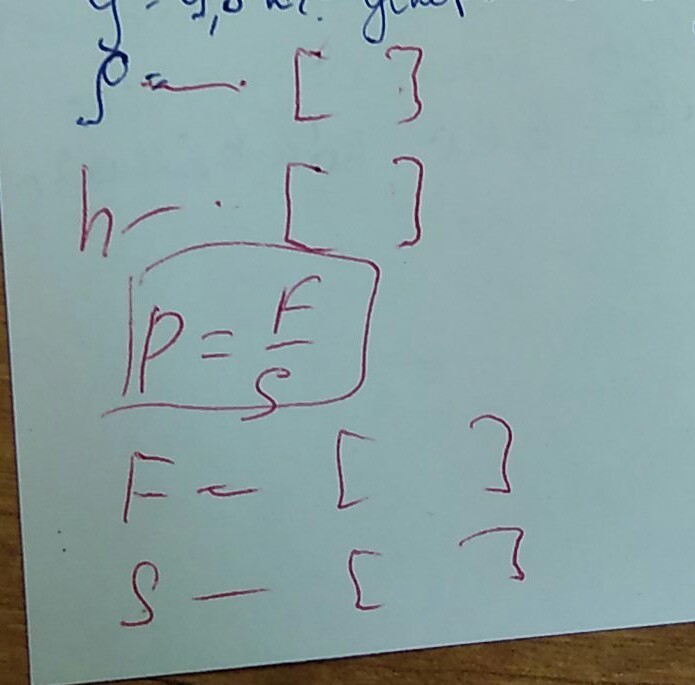 ρ — [ ]
h — [ ]
p = F/S
F — [ ]
S — [ ]